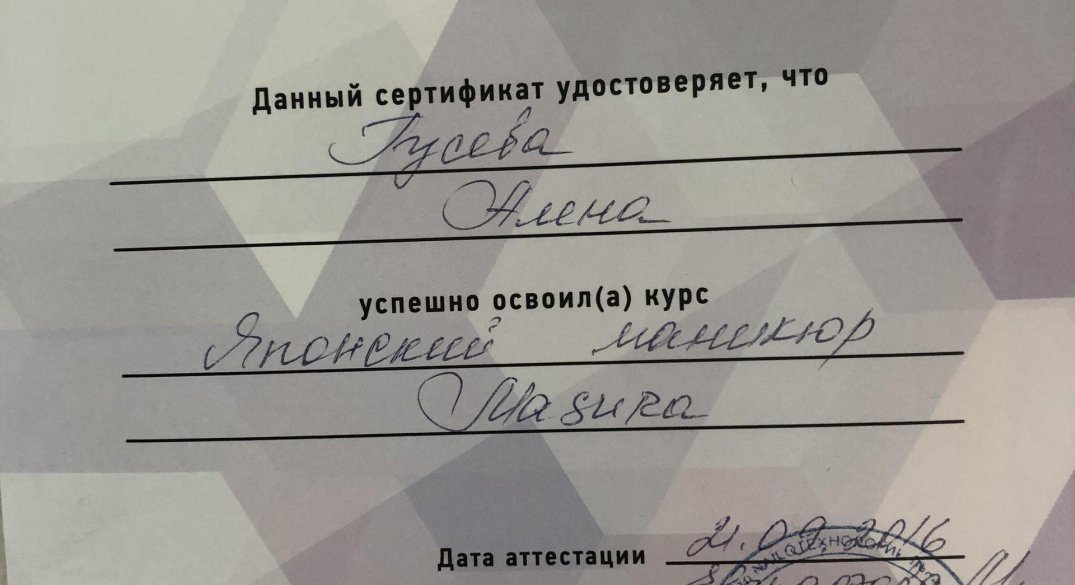 Данный сертификат удостоверяет, что
Гусева
Алена
успешно освоил(а) курс
Японский маникюр
Masura
Дата аттестации 21.09.2016